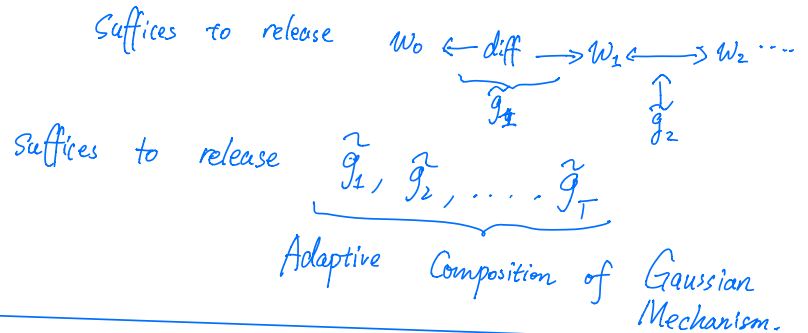 Suffices to release w₀ ← diff → w₁ ↔ w₂ ....
g̃₁
↑
g̃₂
Suffices to release g̃₁, g̃₂, .... g̃_T
Adaptive Composition of Gaussian
Mechanism.